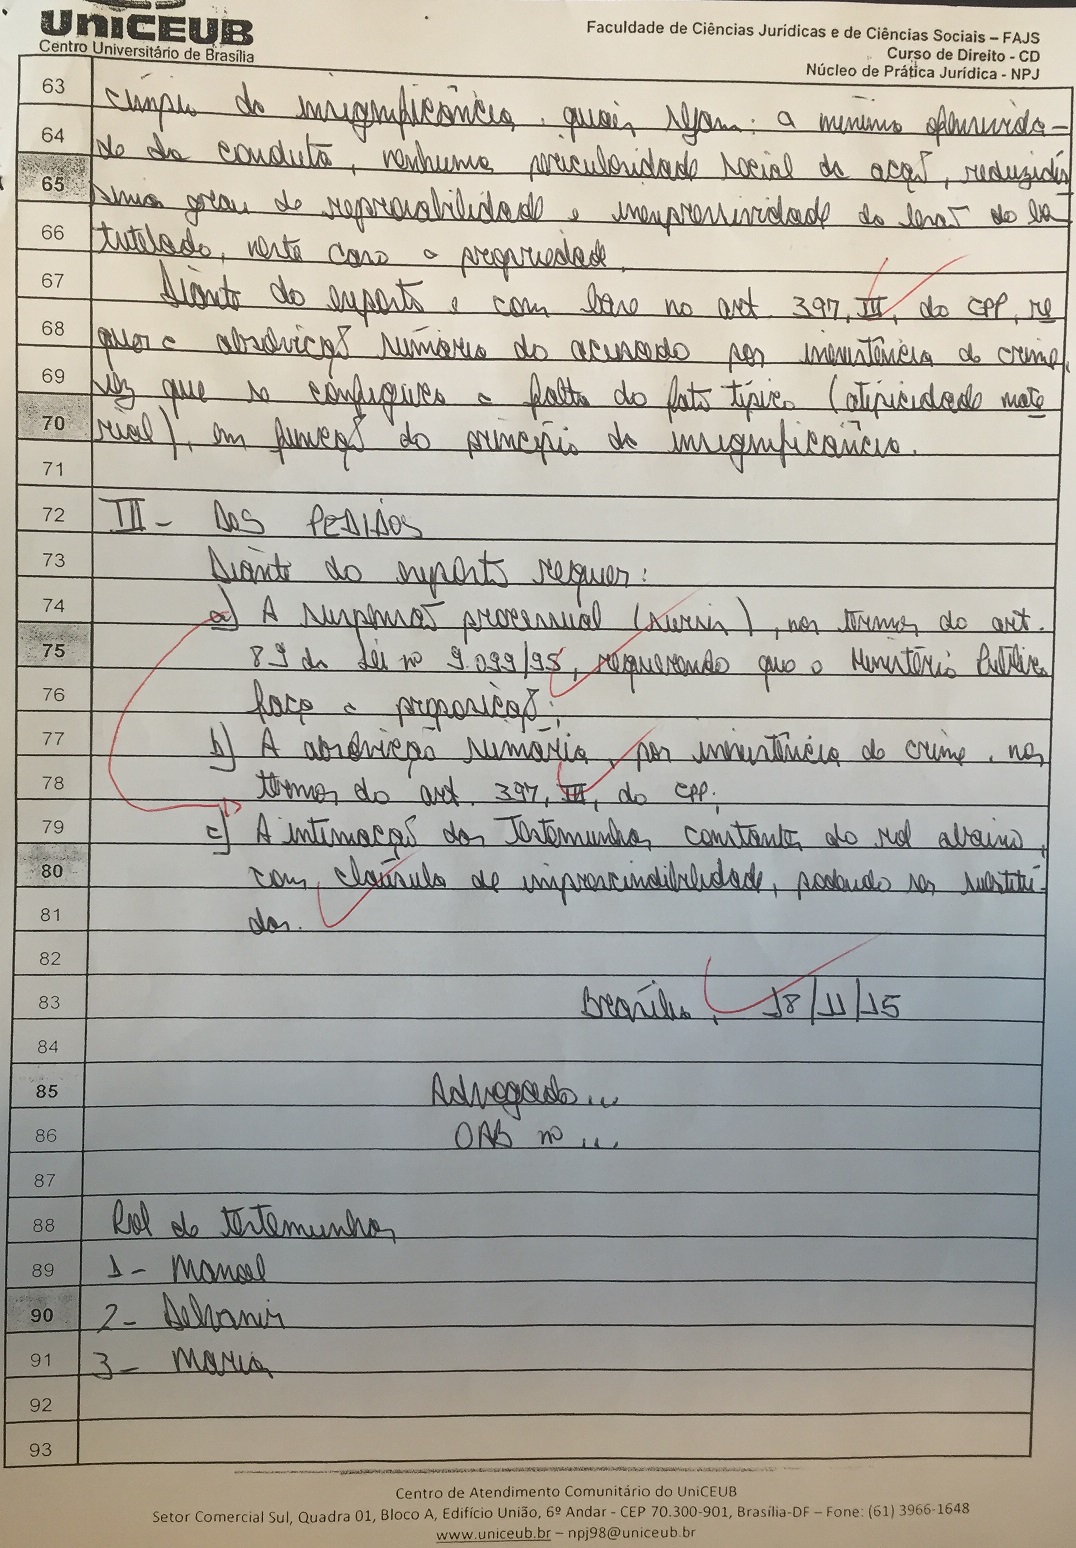 UniCEUB
Centro Universitário de Brasília
Faculdade de Ciências Jurídicas e de Ciências Sociais – FAJS
Curso de Direito - CD
Núcleo de Prática Jurídica - NPJ
63 cínpio da insignificância, quais sejam: a mínima ofensivida-
64 de da conduta, nenhuma periculosidade social da ação, reduzidís
65 simo grau de reprovabilidade e inexpressividade da lesão do
66 tutelado, neste caso a propriedade.
67 Diante do exposto e com base no art. 397, III, do CPP, re
68 quer a absolvição sumária do acusado por inexistência de crime,
69 vez que se configura a falta do fato típico (atipicidade mate
70 rial), em função do princípio da insignificância.
71
72 III - DOS PEDIDOS
73 Diante do exposto requer:
74 a) A suspensão processual (sursis), nos termos do art.
75 89 da Lei nº 9.099/95, requerendo que o Ministério Público
76 faça a proposição;
77 b) A absolvição sumária, por inexistência de crime, nos
78 termos do art. 397, III, do CPP;
79 c) A intimação das Testemunhas constantes do rol abaixo,
80 com cláusula de imprescindibilidade, podendo ser substituí-
81 das.
82
83 Brasília, 18/11/15
84
85 Advogado...
86 OAB nº ...
87
88 Rol de testemunhas
89 1- Manoel
90 2- Delvanir
91 3- Maria
92
93
Centro de Atendimento Comunitário do UniCEUB
Setor Comercial Sul, Quadra 01, Bloco A, Edifício União, 6º Andar - CEP 70.300-901, Brasília-DF – Fone: (61) 3966-1648
www.uniceub.br – npj98@uniceub.br